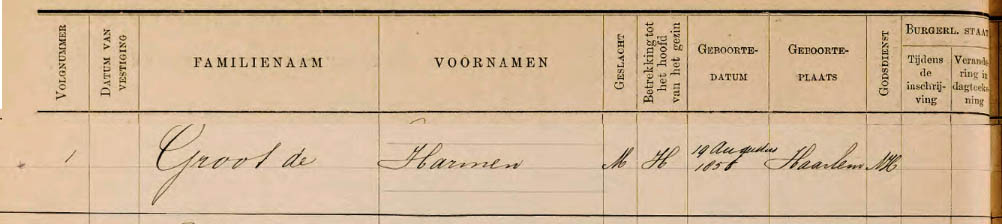 VOLGNUMMER
DATUM VAN
VESTIGING
FAMILIENAAM
VOORNAMEN
GESLACHT
Betrekking tot
het hoofd
van het gezin
GEBOORTE-
DATUM
GEBOORTE-
PLAATS
GODSDIENST
BURGERL. STAAT
Tijdens
de
inschrij-
ving
Verande
ring in
dagteeke
ning
1 Groot de Harmen M H 19 Augustus Haarlem NH